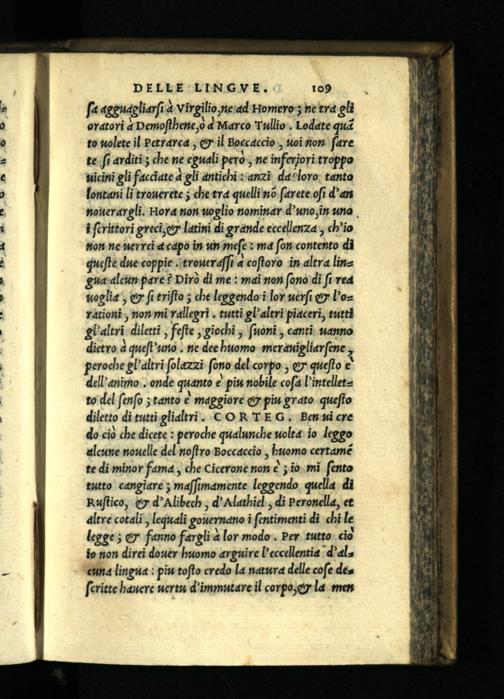 DELLE LINGVE. 109
ſa agguagliarſi à Virgilio, ne ad Homero; ne tra gli
oratori à Demoſthene, ò à Marco Tullio. Lodate quā
to volete il Petrarca, & il Boccaccio, uoi non ſare
te ſi arditi; che ne eguali però, ne inferiori troppo
uicini gli facciate à gli antichi: anzi da loro tanto
lontani li trouerete; che tra quelli nō ſarete oſi d'an
nouerargli. Hora non uoglio nominar d'uno, in uno
i ſcrittori greci, & latini di grande eccellenza, ch'io
non ne uerrei a capo in un meſe: ma ſon contento di
queſte due coppie. trouerassi à coſtoro in altra lin=
gua alcun pare? Dirò di me: mai non ſono di ſi rea
uoglia, & ſi triſto; che leggendo i lor uerſi & l'o=
rationi, non mi rallegri. tutti gl'altri piaceri, tutti
gl'altri diletti, feſte, giochi, ſuoni, canti uanno
dietro à queſt'uno. ne dee huomo merauigliarſene,
peroche gl'altri ſolazzi ſono del corpo, & queſto è
dell'animo. onde quanto è piu nobile coſa l'intellet=
to del ſenſo; tanto è maggiore & piu grato queſto
diletto di tutti glialtri. CORTEG. Ben ui cre
do ciò che dicete: peroche qualunche uolta io leggo
alcune nouelle del noſtro Boccaccio, huomo certamē
te di minor fama, che Cicerone non è; io mi ſento
tutto cangiare; maſſimamente leggendo quella di
Ruſtico, & d'Alibech, d'Alathiel, di Peronella, et
altre cotali, lequali gouernano i ſentimenti di chi le
legge; & fanno fargli à lor modo. Per tutto ciò
io non direi douer huomo arguire l'eccellentia d'al=
cuna lingua: piu toſto credo la natura delle coſe de=
ſcritte hauere uertu d'immutare il corpo, & la men